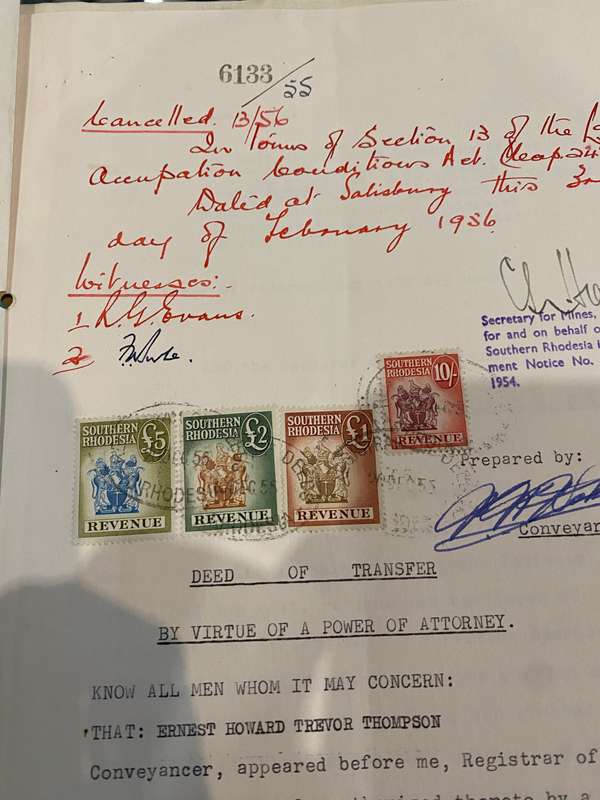 6133/55
Cancelled. 13/56
In Terms of Section 13 of the
Occupation Conditions Act.
Dated at Salisbury this
day of February 1956
Witnesses:-
1 R.G. Evans.
2
Secretary for Mines,
for and on behalf o
Southern Rhodesia i
ment Notice No.
1954.
SOUTHERN RHODESIA 10/-
REVENUE
SOUTHERN RHODESIA £5
REVENUE
SOUTHERN RHODESIA £2
REVENUE
SOUTHERN RHODESIA £1
REVENUE
Prepared by:
Conveyan
DEED OF TRANSFER
BY VIRTUE OF A POWER OF ATTORNEY.
KNOW ALL MEN WHOM IT MAY CONCERN:
THAT: ERNEST HOWARD TREVOR THOMPSON
Conveyancer, appeared before me, Registrar of
thereto by a